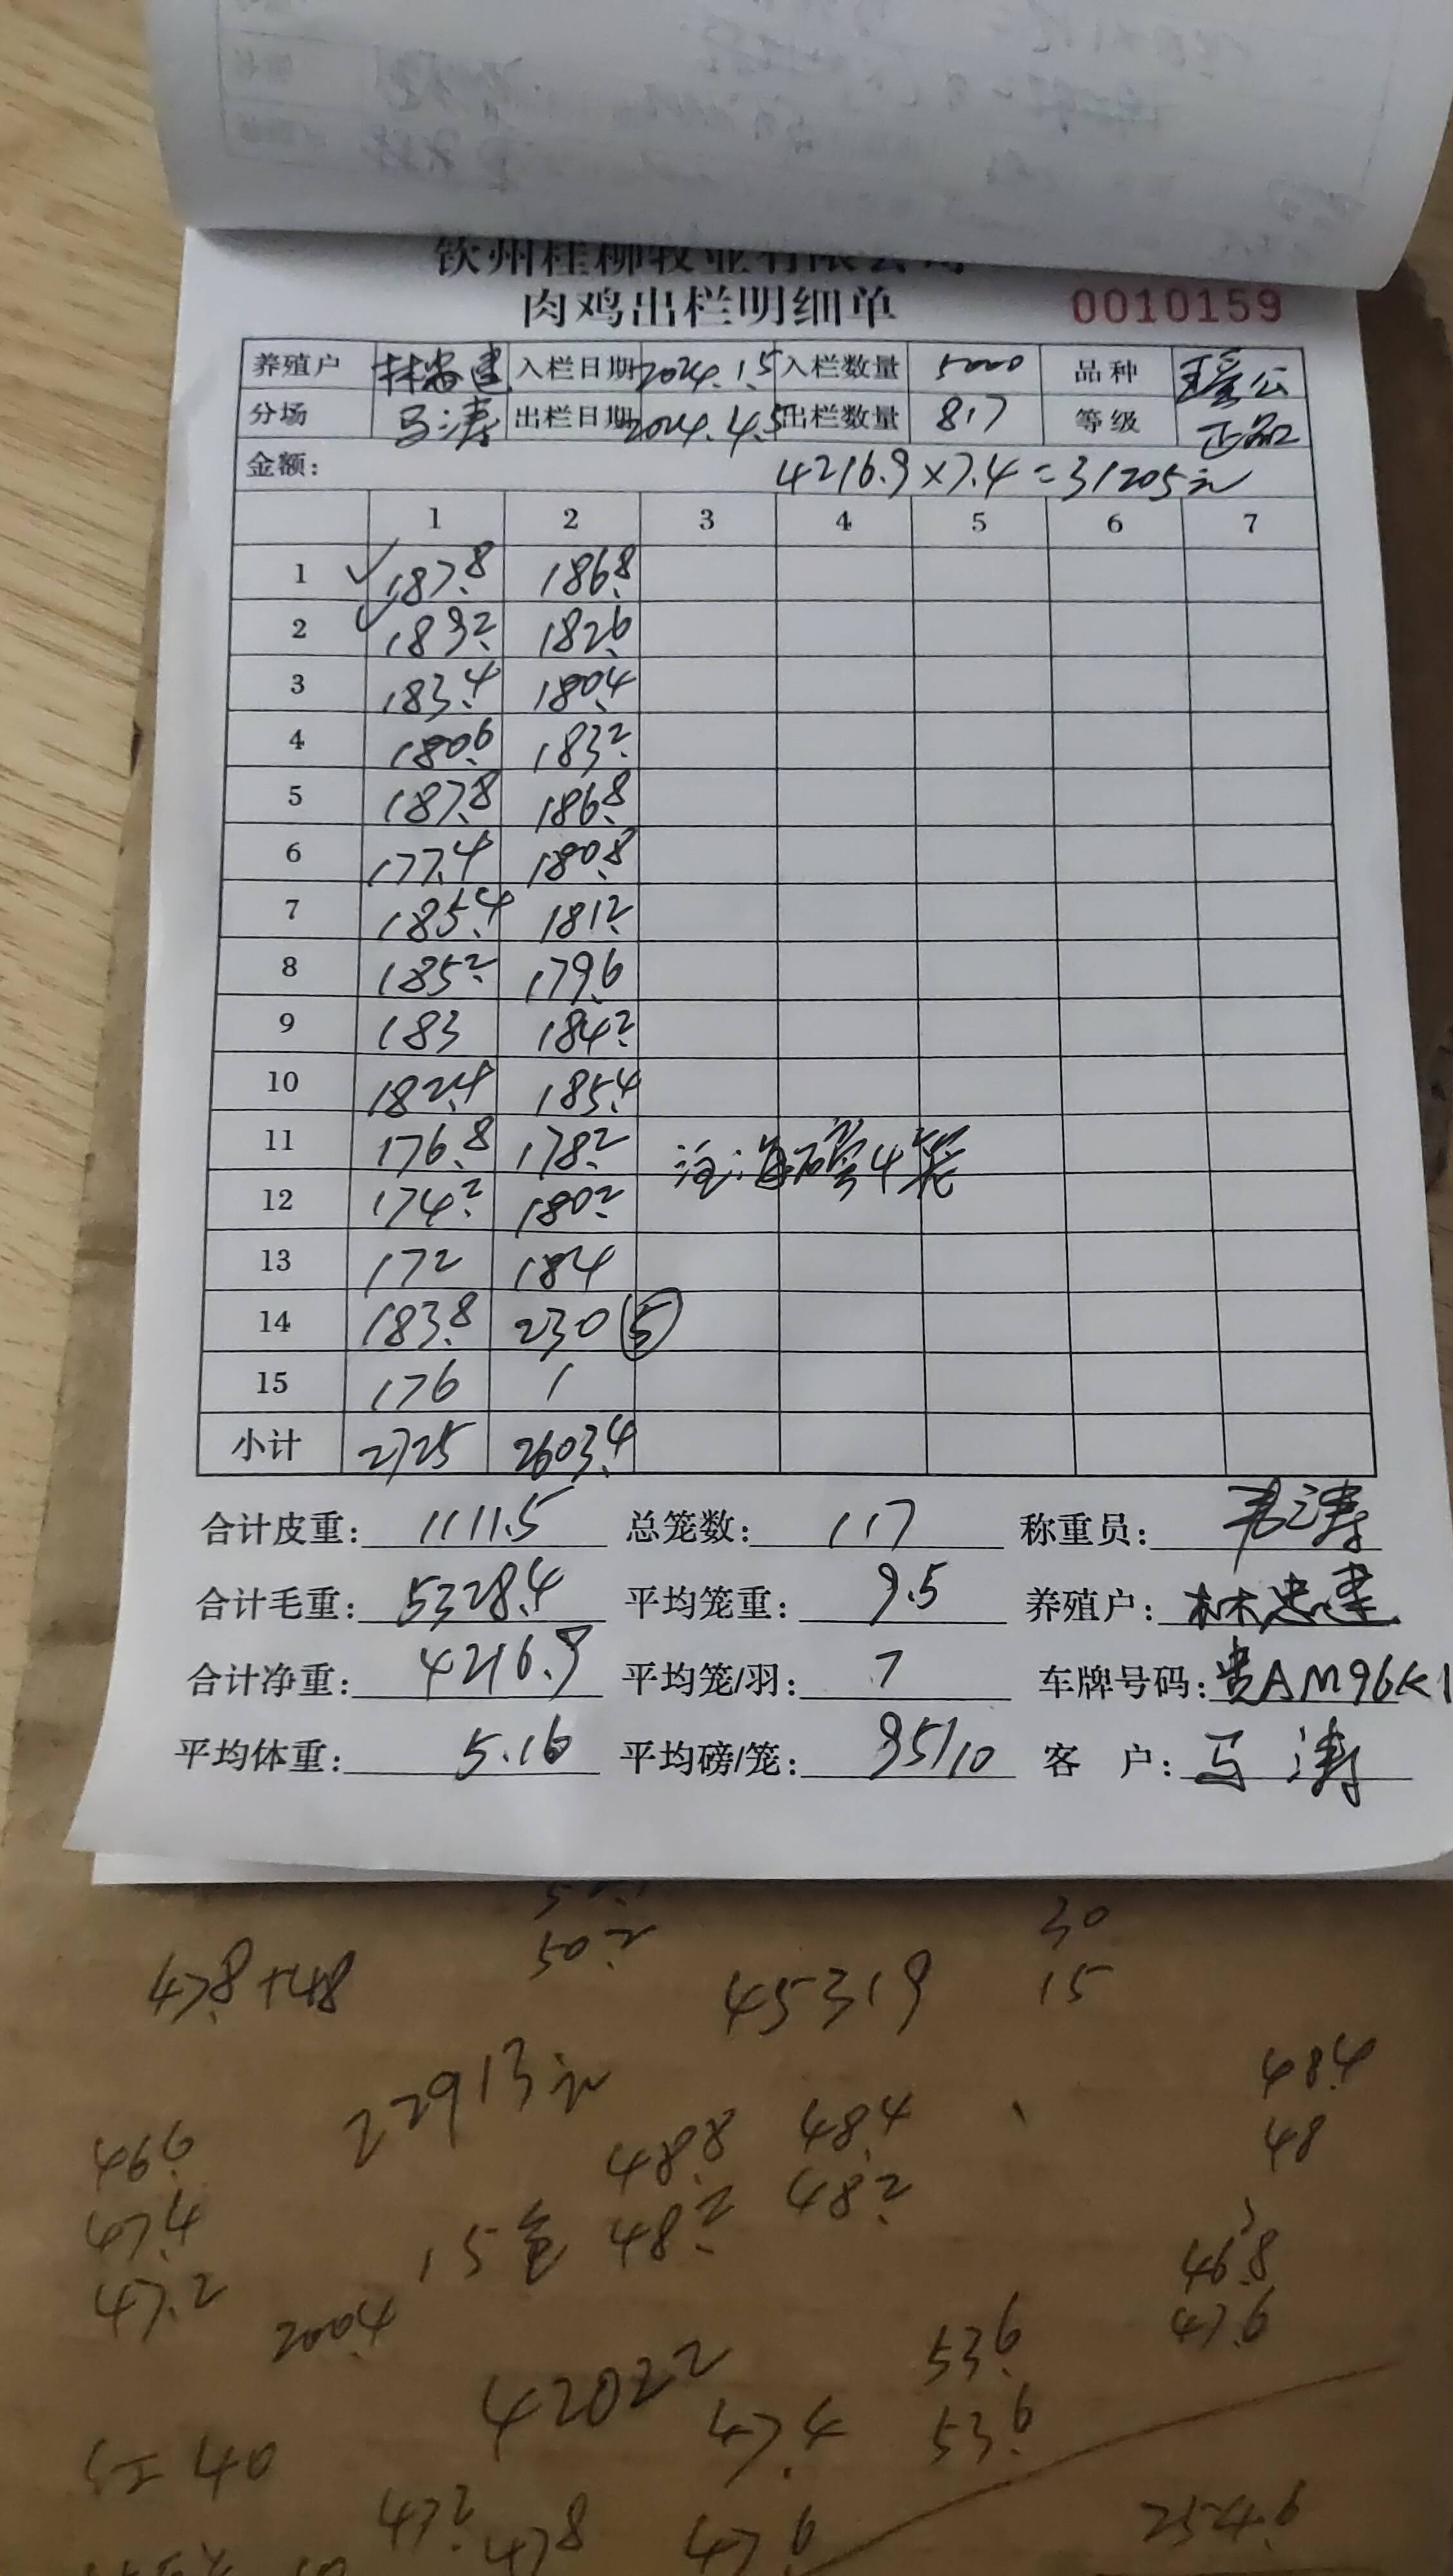 钦州桂柳牧业有限公司
肉鸡出栏明细单 0010159
养殖户 林忠建 入栏日期 2024.1.5 入栏数量 5000 品种 瑶公
分场 马涛 出栏日期 2024.4.5 出栏数量 817 等级 正品
金额: 4216.9×7.4=31205元
1 2 3 4 5 6 7
1 187.8 186.8
2 189.2 182.6
3 183.4 180.4
4 180.6 183.2
5 187.8 186.8
6 177.4 180.8
7 185.4 181.2
8 185.2 179.6
9 183 184.2
10 182.4 185.4
11 176.8 178.2 注:每磅4笼
12 174.2 180.2
13 172 184
14 183.8 230 5
15 176 /
小计 2725 2603.4
合计皮重: 1111.5 总笼数: 117 称重员: 韦涛
合计毛重: 5328.4 平均笼重: 9.5 养殖户: 林忠建
合计净重: 4216.9 平均笼/羽: 7 车牌号码: 贵AM96K1
平均体重: 5.16 平均磅/笼: 95/10 客 户: 马涛
50.2 30
47.8+48 45319 15
22913元 48.4
46.6 48.8 48.4 48
47.4 15笼 48.2 48.2
47.2 46.8
200.4 53.6 47.6
42022 47.4 53.6
40
47.2 47.8 47.6 254.6